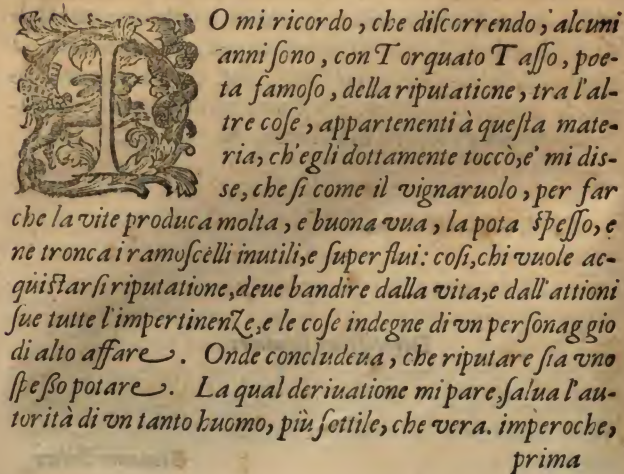 IO mi ricordo, che discorrendo, alcuni
anni sono, con Torquato Tasso, poe-
ta famoso, della riputatione, tra l'al-
tre cose, appartenenti à questa mate-
ria, ch'egli dottamente toccò, e' mi dis-
se, che si come il vignaruolo, per far
che la vite produca molta, e buona vua, la pota spesso, e
ne tronca i ramoscelli inutili, e superflui: cosi, chi vuole ac-
quistarsi riputatione, deue bandire dalla vita, e dall'attioni
sue tutte l'impertinenze, e le cose indegne di vn personaggio
di alto affare. Onde concludeua, che riputare sia vno
spesso potare. La qual deriuatione mi pare, salua l'au-
torità di vn tanto huomo, più sottile, che vera. imperoche,
prima